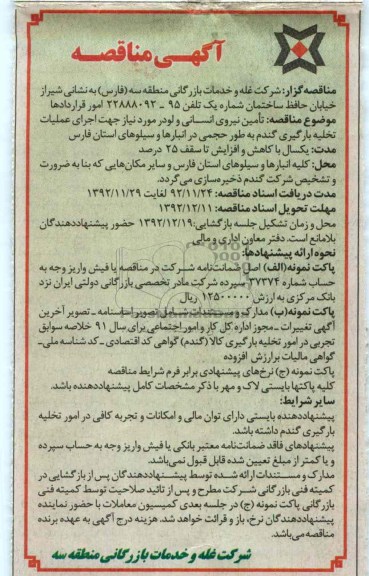 آگهی مناقصه
مناقصه‌گزار: شرکت غله و خدمات بازرگانی منطقه سه (فارس) به نشانی شیراز
خیابان حافظ ساختمان شماره یک تلفن ۹۵ - ۲۲۸۸۰۹۲ امور قراردادها
موضوع مناقصه: تأمین نیروی انسانی و لودر مورد نیاز جهت اجرای عملیات
تخلیه بارگیری گندم به طور حجمی در انبارها و سیلوهای استان فارس
مدت: یکسال با کاهش و افزایش تا سقف ۲۵ درصد
محل: کلیه انبارها و سیلوهای استان فارس و سایر مکان‌هایی که بنا به ضرورت
و تشخیص شرکت گندم ذخیره‌سازی می‌گردد.
مدت دریافت اسناد مناقصه: ۹۲/۱۱/۲۴ لغایت ۱۳۹۲/۱۱/۲۹
مهلت تحویل اسناد مناقصه: ۱۳۹۲/۱۲/۱۱
محل و زمان تشکیل جلسه بازگشایی: ۱۳۹۲/۱۲/۱۹ حضور پیشنهاددهندگان
بلامانع است. دفتر معاون اداری و مالی
نحوه ارائه پیشنهادها:
پاکت نمونه (الف) اصل ضمانت‌نامه شرکت در مناقصه یا فیش واریز وجه به
حساب شماره ۳۷۳۷۴ سپرده شرکت مادر تخصصی بازرگانی دولتی ایران نزد
بانک مرکزی به ارزش ۱۲۵۰۰۰۰۰ ریال
پاکت نمونه (ب) مدارک و مستندات شامل تصویر اساسنامه - تصویر آخرین
آگهی تغییرات - مجوز اداره کل کار و امور اجتماعی برای سال ۹۱ خلاصه سوابق
تجربی در امور تخلیه بارگیری کالا (گندم) گواهی کد اقتصادی - کد شناسه ملی -
گواهی مالیات بر ارزش افزوده
پاکت نمونه (ج) نرخ‌های پیشنهادی برابر فرم شرایط مناقصه
کلیه پاکتها بایستی لاک و مهر با ذکر مشخصات کامل پیشنهاددهنده باشد.
سایر شرایط:
پیشنهاددهنده بایستی دارای توان مالی و امکانات و تجربه کافی در امور تخلیه
بارگیری گندم داشته باشد.
پیشنهادهای فاقد ضمانت‌نامه معتبر بانکی یا فیش واریز وجه به حساب سپرده
و یا کمتر از مبلغ تعیین شده قابل قبول نمی‌باشد.
مدارک و مستندات ارائه شده توسط پیشنهاددهندگان پس از بازگشایی در
کمیته فنی بازرگانی شرکت مطرح و پس از تائید صلاحیت توسط کمیته فنی
بازرگانی پاکت نمونه (ج) در جلسه بعدی کمیسیون معاملات با حضور نماینده
پیشنهاددهندگان نرخ، باز و قرائت خواهد شد. هزینه درج آگهی به عهده برنده
مناقصه می‌باشد.
شرکت غله و خدمات بازرگانی منطقه سه